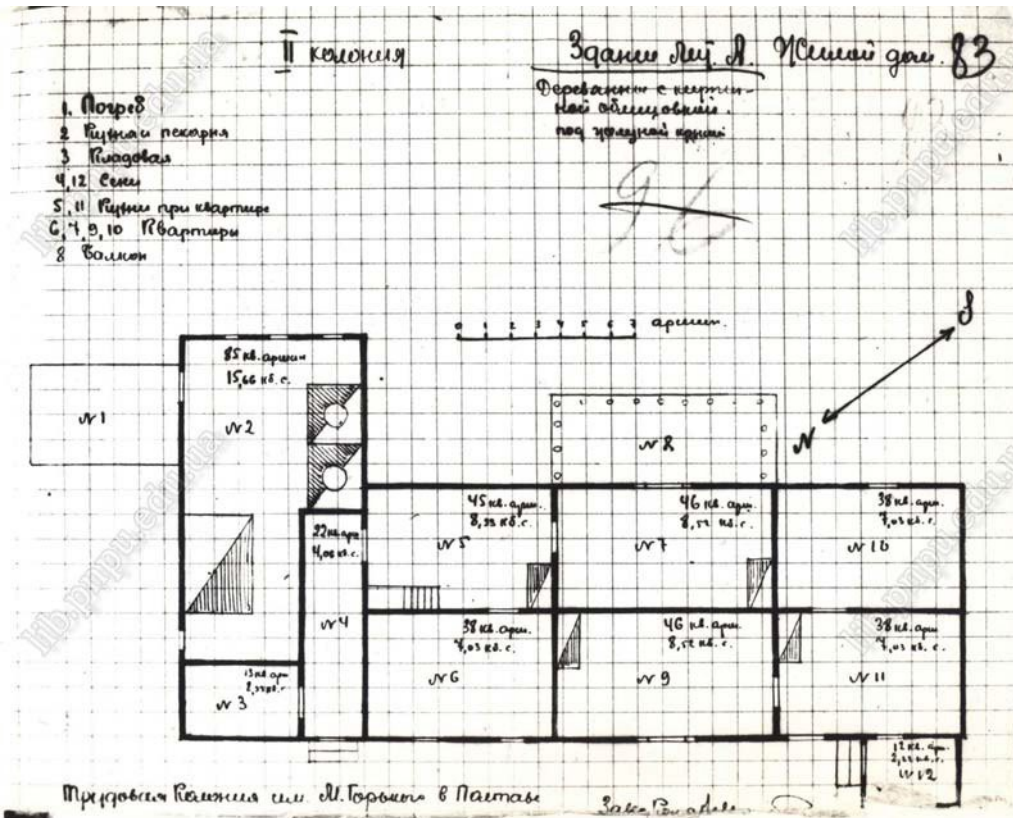 II колония
Здание лит. А. Жилой дом. 83
Деревянное с кирпич-
ной облицовкой
под железной крышей
1. Погреб
2 Кухня и пекарня
3 Кладовая
4,12 Сени
5,11 Кухни при квартире
6,7,9,10 Квартиры
8 Балкон
0 1 2 3 4 5 6 7 аршин.
S
N
85 кв. аршин
15,66 кв. с.
N 1
N 2
N 8
22 кв. арш
4,06 кв. с.
45 кв. арш.
8,33 кв. с.
N 5
46 кв. арш.
8,52 кв. с.
N 7
38 кв. арш.
7,03 кв. с.
N 10
N 4
38 кв. арш.
7,03 кв. с.
N 6
46 кв. арш.
8,52 кв. с.
N 9
38 кв. арш.
7,03 кв. с.
N 11
13 кв. арш
N 3
12 кв. арш.
2,22 кв. с.
N 12
Трудовая Колония им. М. Горького в Полтаве
Зав.
lib.pnpu.edu.ua
lib.pnpu.edu.ua
lib.pnpu.edu.ua
lib.pnpu.edu.ua